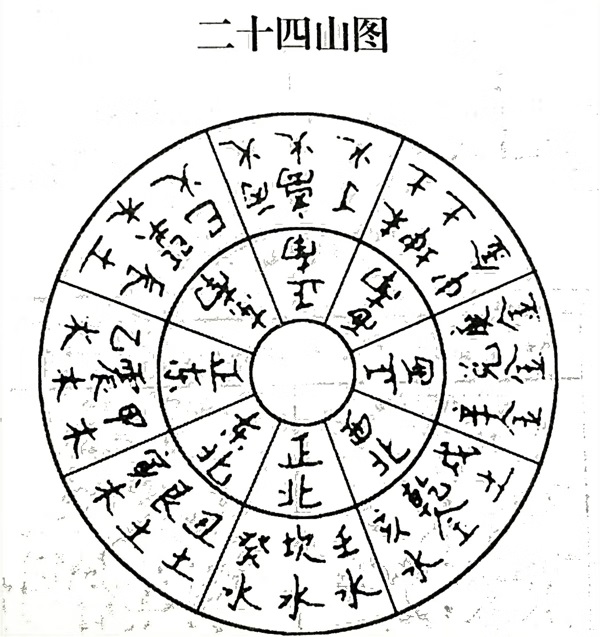 二十四山图
火 火 火
丙 离 丁
正南
土 土 金
未 坤 申
西南
庚 金
兑 金
辛 金
正西
戌 土
乾 金
亥 水
西北
癸 坎 壬
水 水 水
正北
寅 艮 丑
木 土 土
东北
木 乙
木 震
木 甲
正东
土 木 火
辰 巽 巳
东南